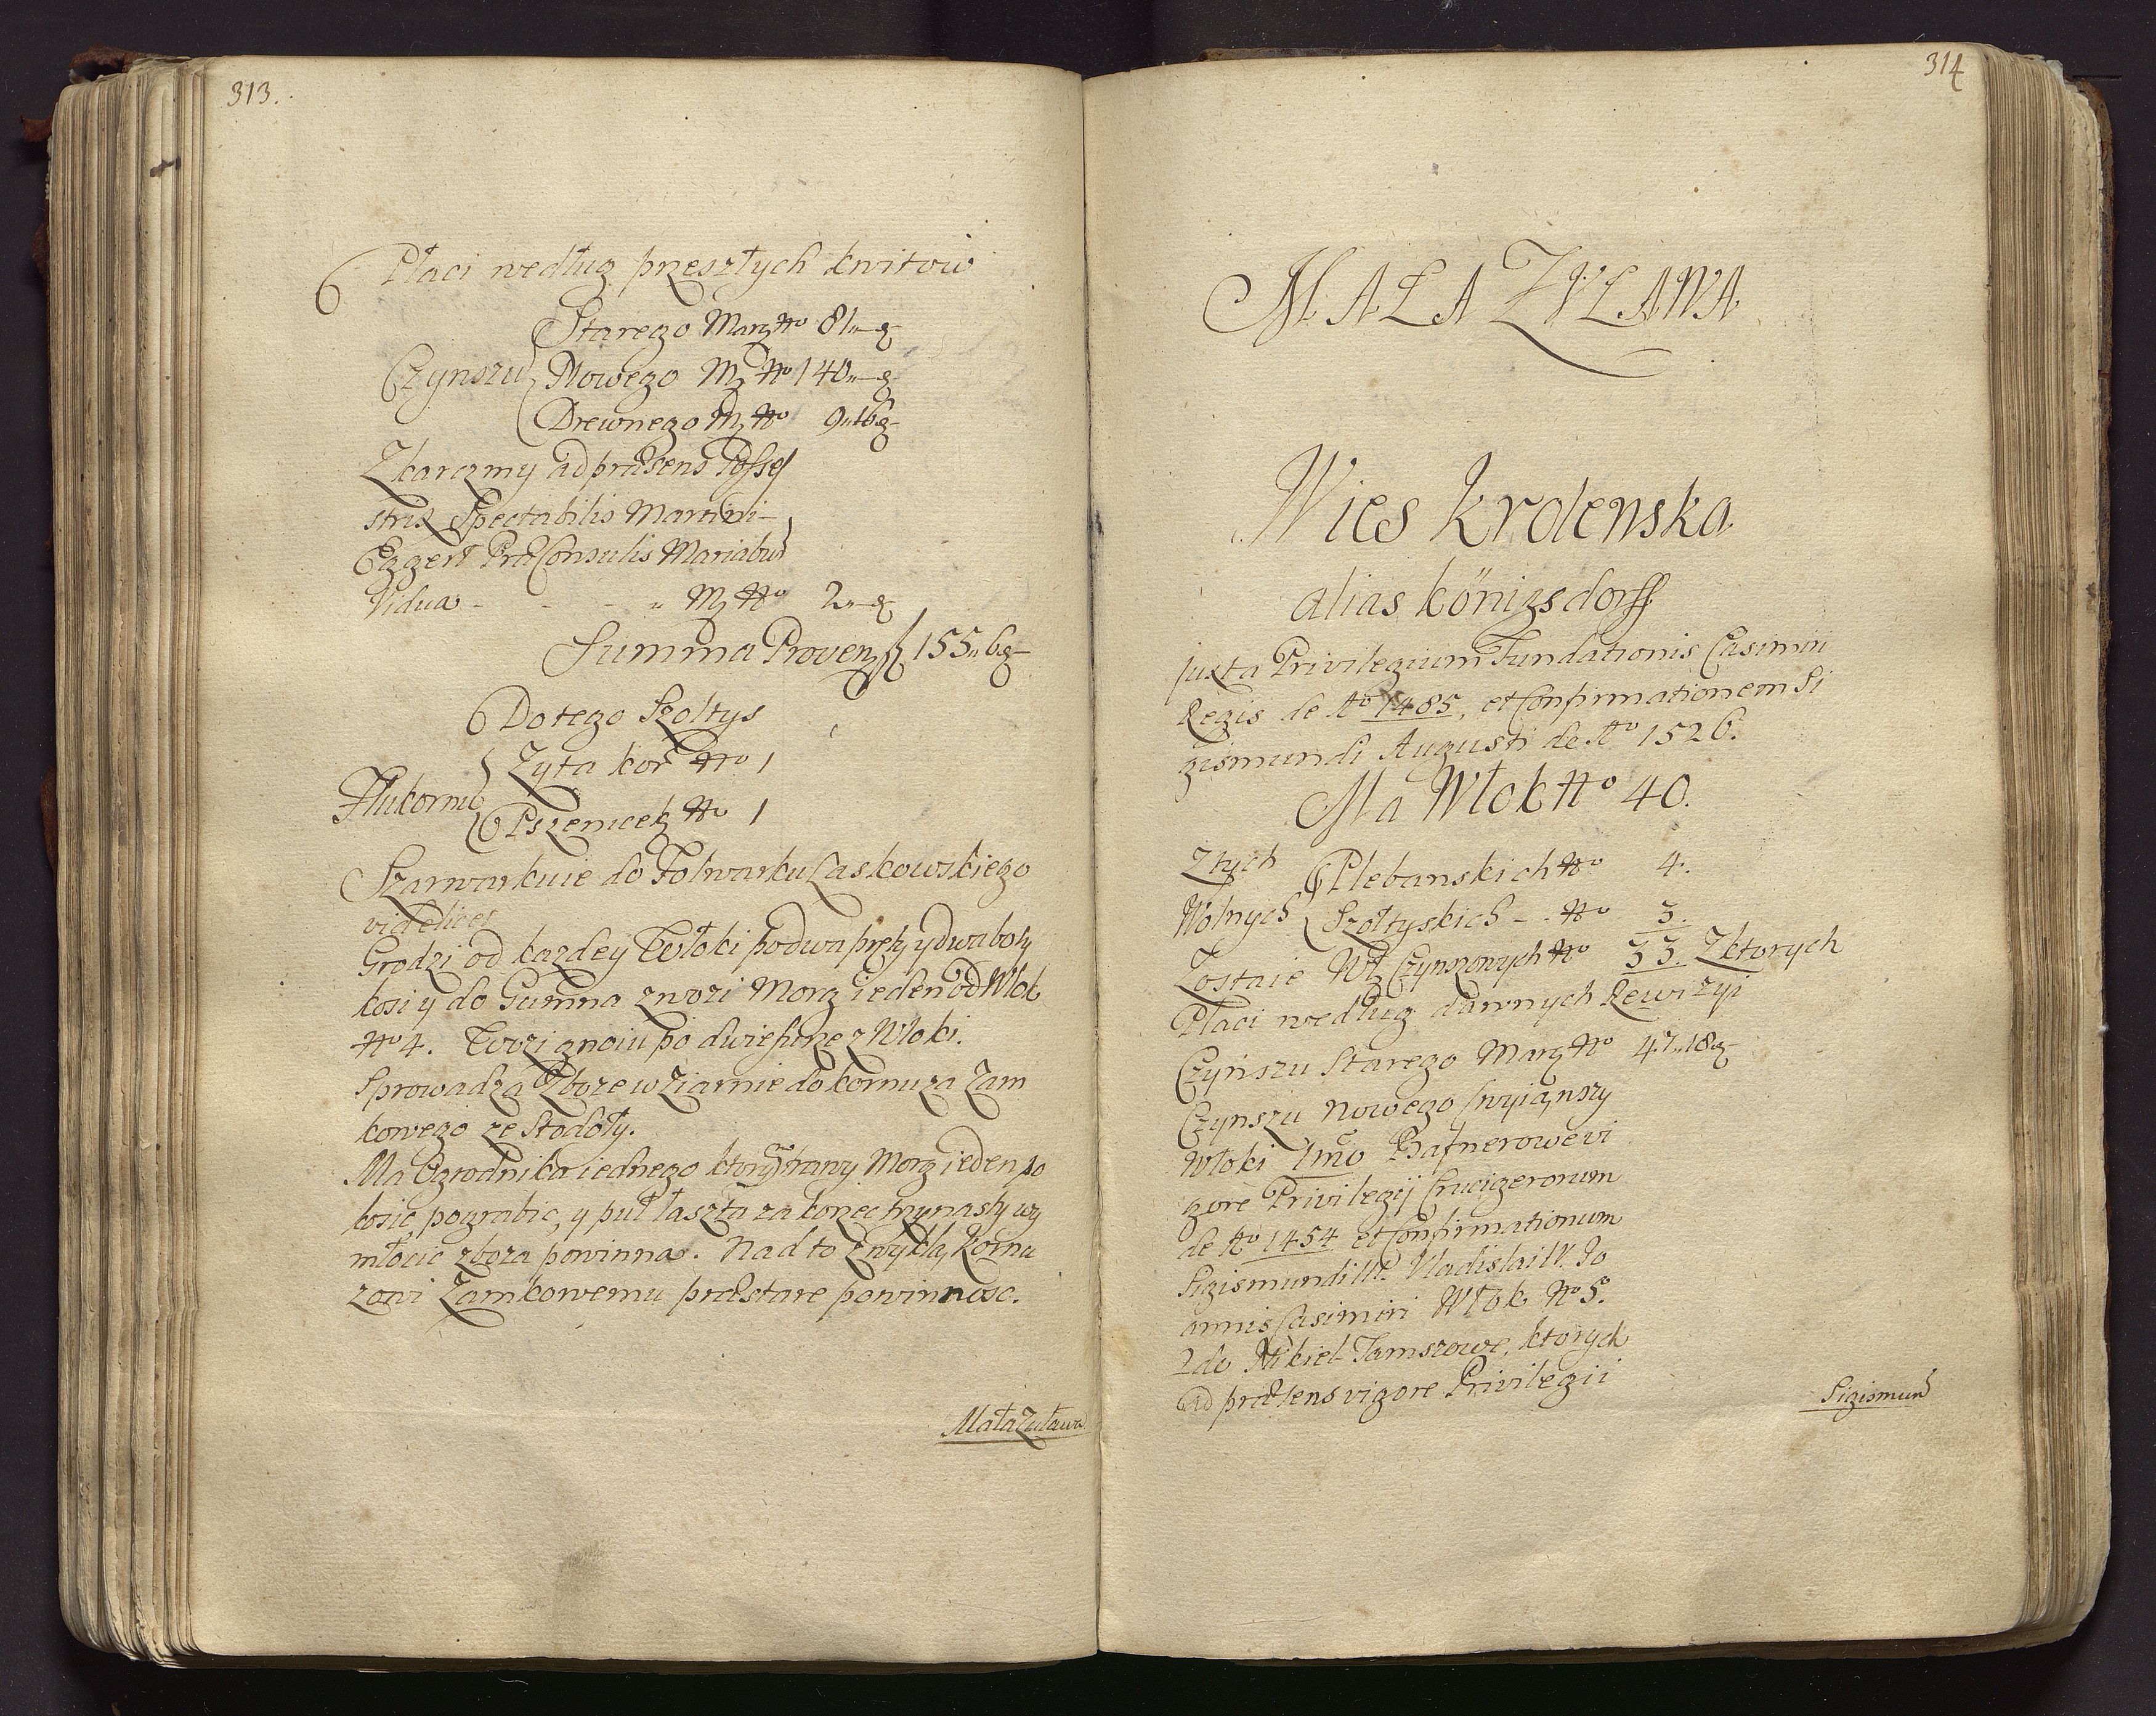 313.
Płaci według przeszłych kwitow
Starego Marz No 81„—g
Czynszu Nowego Mz No 140„—g
Drewnego Mz No 9„16g
Zkarczmy ad præsens Posses
stris Spectabilis Martini
Eggert PræConsulis Mariæbur
Vidua - - - „ Mz No 2„—g
Summa Provenz f 155„6g
Do tego Szoltys
Zyta kor No 1
Hukornu
Pszenice kz No 1
Szarwarkuie do Folwarku Laskowskiego
videlicet
Grodzi od kazdey Włoki po dwa pręty y dwa boty
kosi y do Gumna zwozi Morg ieden od Włok
No 4. Wozi gnoiu po dwie furze z Włoki.
Sprowadza Zboze w Ziarnie do kornuza Zam
kowego ze Stodoły.
Ma Ogrodnika iednego ktory trawy Morg ieden po
kosic, pograbic, y puł łaszta za korzec trzynasty wy
młocic zboza powinna. Nad to zwykłą Kornu
zowi Zamkowemu præstare powinnosc.
Mała Zuława
314
MAŁA ZUŁAWA
Wies Krolewska
alias königsdorff
juxta Privilegium Fundationis Casimiri
Regis de Ao 1485, et Confirmationem Si
gismundi Augusti de Ao 1526.
Ma Włok No 40.
Ztych Plebanskich No 4.
Wolnych Szołtyskich - - No 3.
Zostaie Wł Czynszowych No 33. Zktorych
Płaci według dawnych Rewizyi
Czynszu Starego Marz No 47„18g
Czynszu Nowego (wyiąwszy
Włoki 1mo Hafnerowe vi
gore Privilegij Crucigerorum
de Ao 1454 et Confirmationum
Sigismundi III. Vladislai IV. Jo
annis Casimiri Włok No 5.
2do Nikiel Jamszowe, ktorych
ad præsens vigore Privilegii
Sigismun